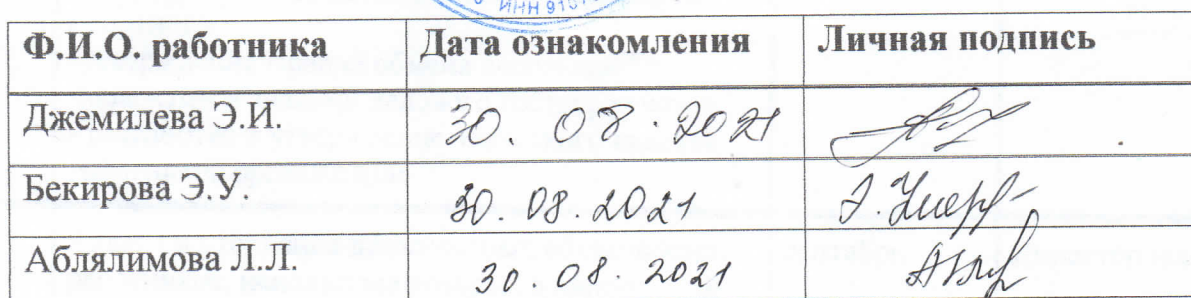 ИНН 910
Ф.И.О. работника Дата ознакомления Личная подпись
Джемилева Э.И. 30. 08. 2021
Бекирова Э.У. 30. 08. 2021
Аблялимова Л.Л. 30 08. 2021